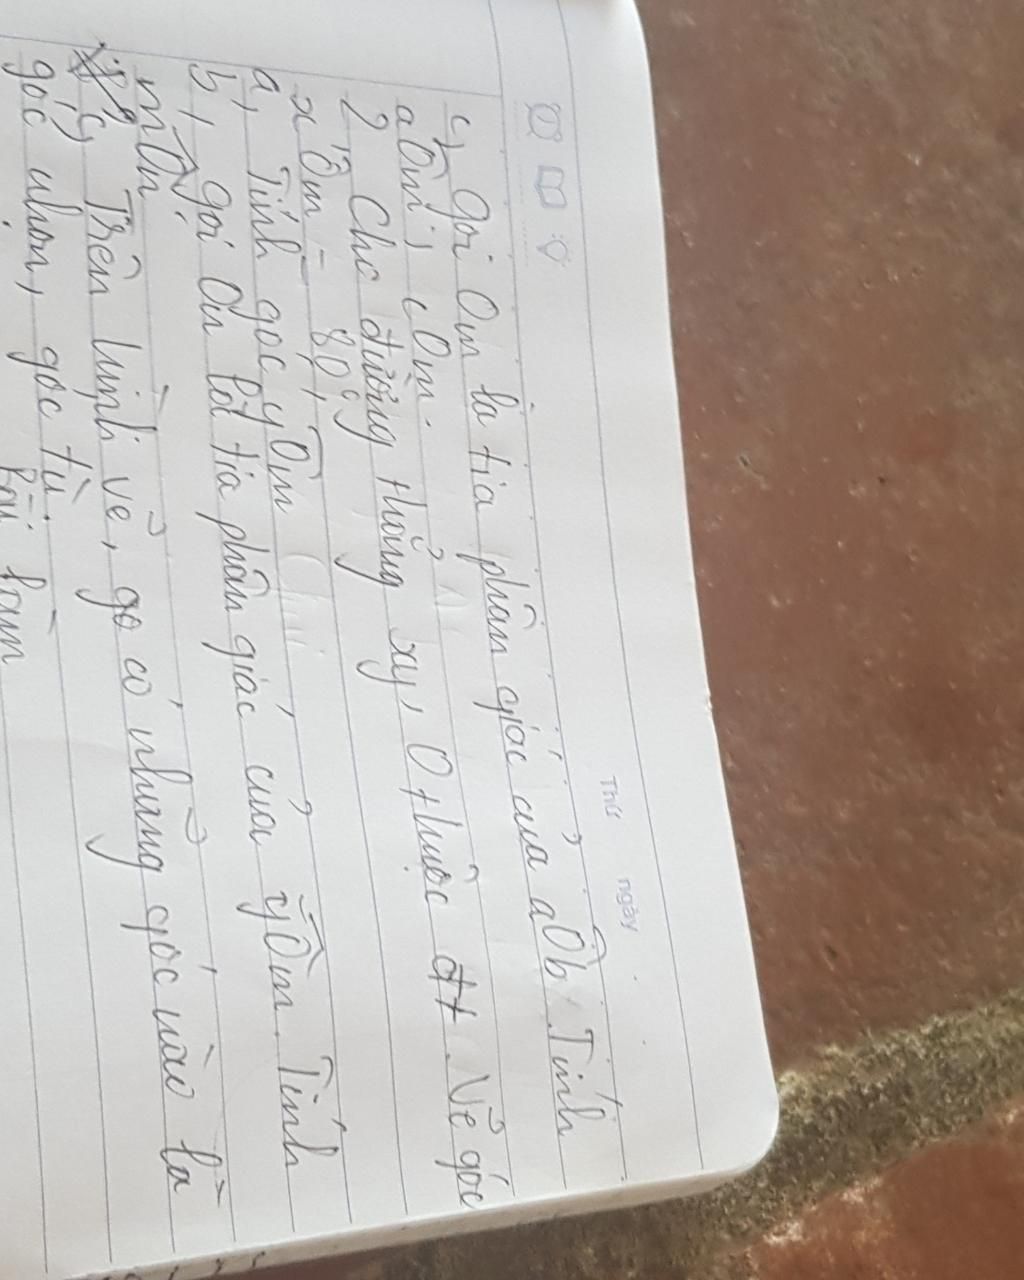 Thứ ngày
c, gọi Om là tia phân giác của aOb. Tính
aOm, cOm.
2, Cho đường thẳng xy, O thuộc đt. Vẽ góc
xOm = 80°,
a, Tính góc yOm
b, gọi On là tia phân giác của yOm. Tính
mOn
c, Trên hình vẽ, go có những góc nào là
góc nhọn, góc tù
Bài làm